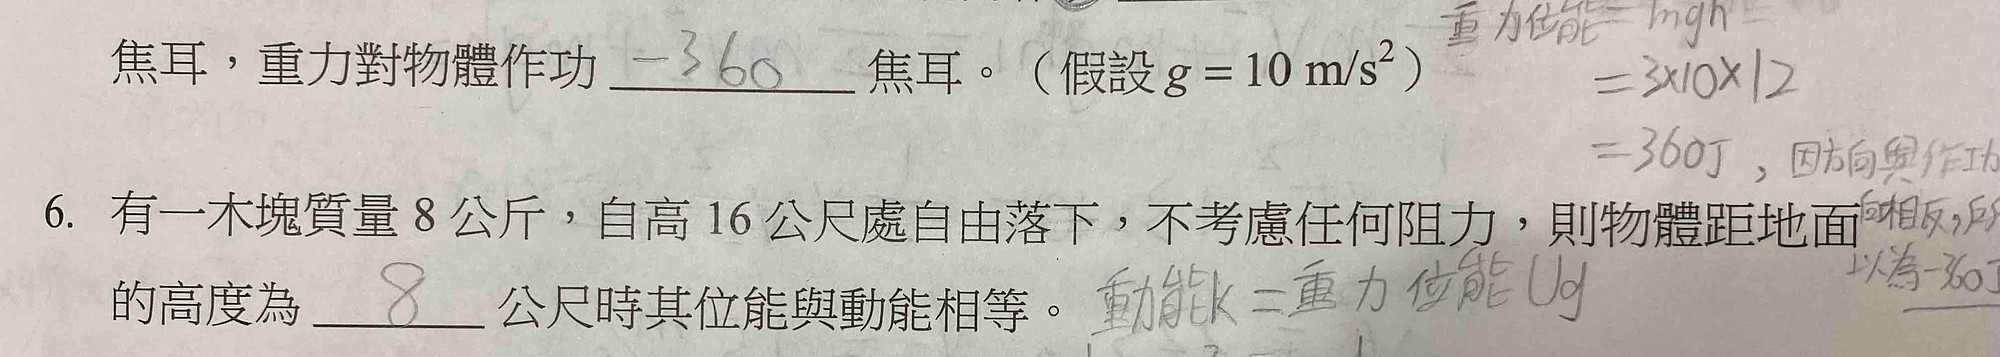 重力位能=mgh=
焦耳，重力對物體作功 -360 焦耳。（假設 g = 10 m/s²）
=3×10×12
=360J，因方向與作功
6. 有一木塊質量 8 公斤，自高 16 公尺處自由落下，不考慮任何阻力，則物體距地面
向相反，所
以為-360J
的高度為 8 公尺時其位能與動能相等。 動能k=重力位能Ug